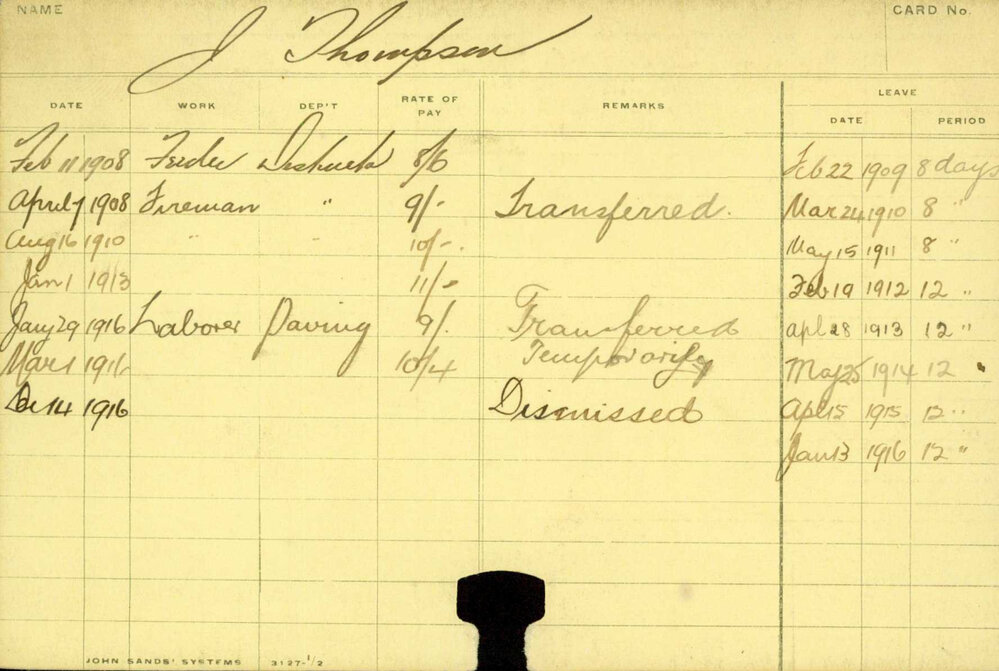 NAME CARD No.
J Thompson
DATE WORK DEP'T RATE OF PAY REMARKS LEAVE
DATE PERIOD
Feb 11 1908 8/6 Feb 22 1909 8 days
April 7 1908 Fireman " 9/- Transferred. Mar 24 1910 8 "
Aug 16 1910 " " 10/-. May 15 1911 8 "
Jan 1 1913 11/- Feb 19 1912 12 "
Jany 29 1916 Laborer Paving 9/. Transferred Apl 28 1913 12 "
Mar 1 1916 10/4 Temporarily May 25 1914 12 "
14 1916 Dismissed Apl 15 1915 12 "
Jan 13 1916 12 "
JOHN SANDS' SYSTEMS 3127-1/2